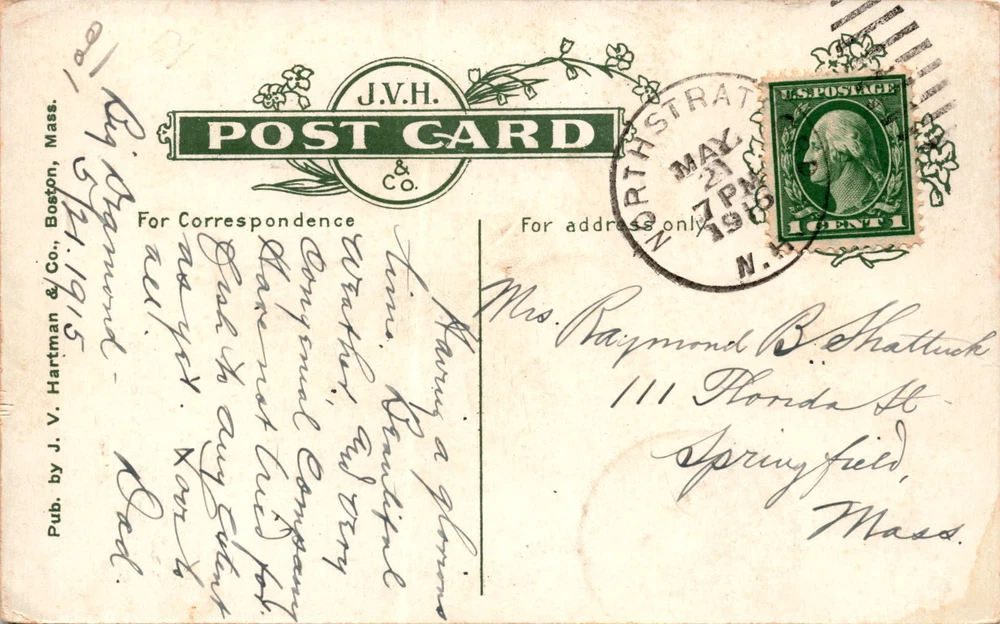 J.V.H.
POST CARD
& Co.
For Correspondence
For address only
NORTH STRAT
MAY
21
7 PM
1915
N.H.
U.S. POSTAGE
1 CENT 1
Pub. by J. V. Hartman & Co., Boston, Mass.
Big Diamond -
5/21. 1915
Having a glorious
time. Beautiful
Weather, and very
Congenial Company
Have not tried for
fish to any extent
as yet. Love to
all. Dad.
Mrs. Raymond B. Shattuck
111 Florida St
Springfield,
Mass.